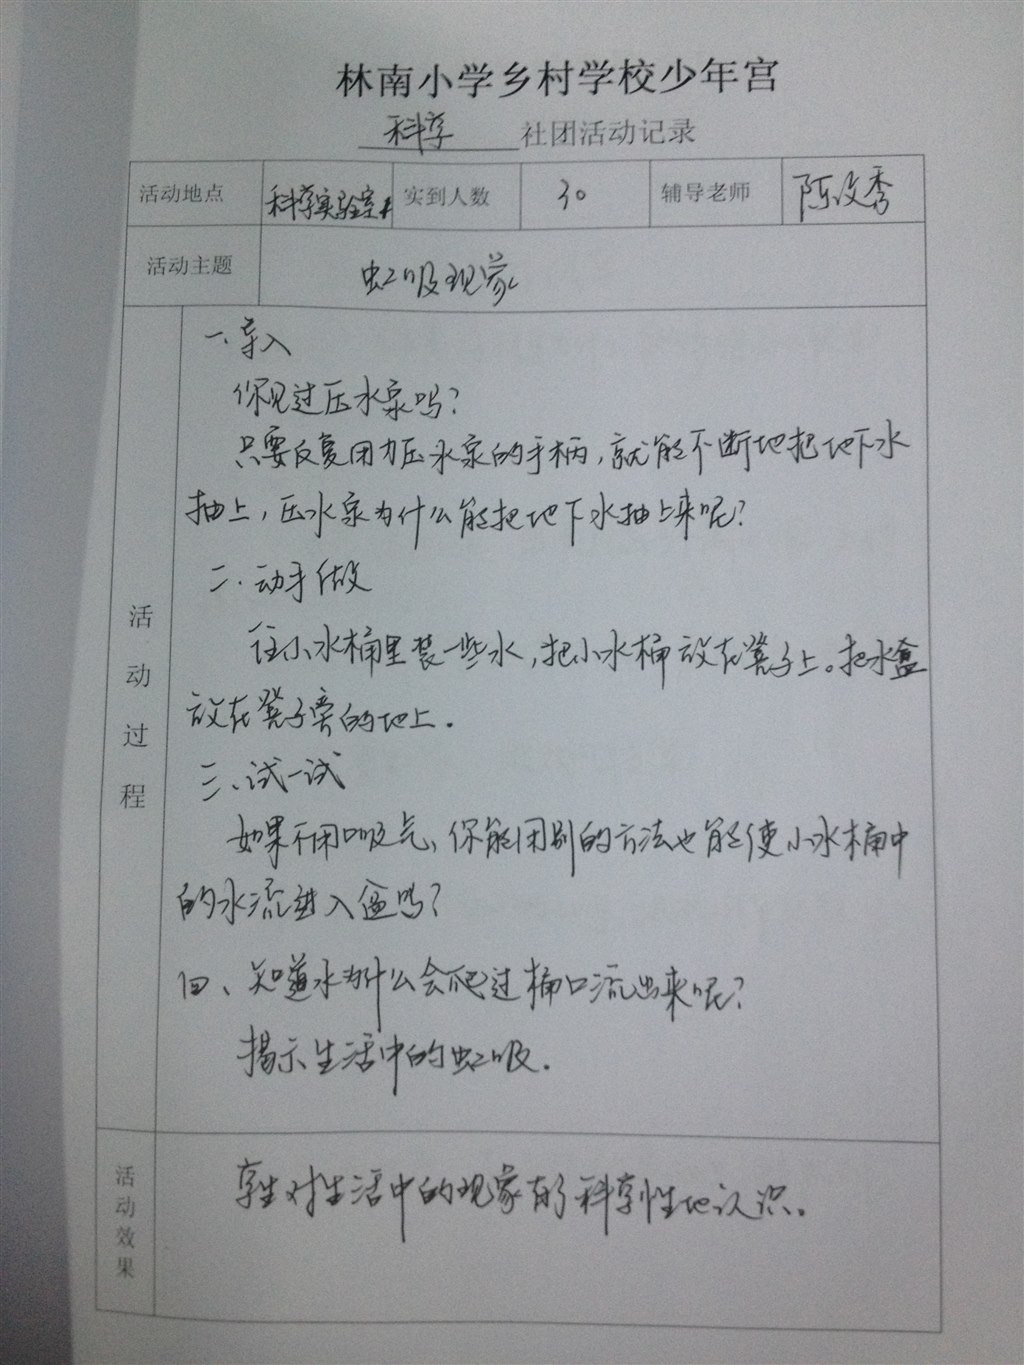 林南小学乡村学校少年宫
科学 社团活动记录
活动地点 科学实验室 实到人数 30 辅导老师 陈改秀
活动主题 虹吸现象
活动过程
一、导入
你见过压水泵吗?
只要反复用力压水泵的手柄,就能不断地把地下水
抽上,压水泵为什么能把地下水抽上来呢?
二、动手做
往小水桶里装一些水,把小水桶放在凳子上。把水盆
放在凳子旁的地上.
三、试一试
如果不用吸气、你能用别的方法也能使小水桶中
的水流进入盆吗?
四、知道水为什么会爬过桶口流出来呢?
揭示生活中的虹吸.
活动效果
学生对生活中的现象有了科学性地认识。